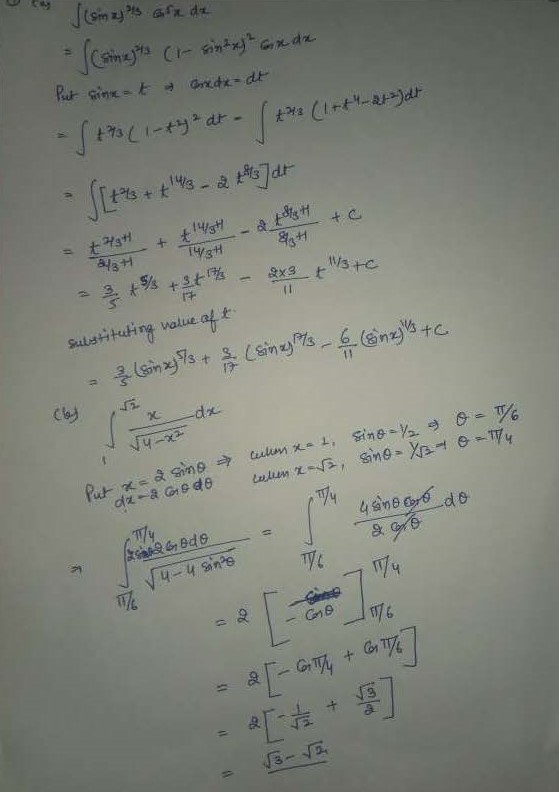 (a) ∫(sinx)^2/3 cos^5x dx
= ∫(sinx)^2/3 (1- sin²x)² cosx dx
Put sinx = t ⇒ cosxdx = dt
= ∫ t^2/3 (1-t²)² dt = ∫ t^2/3 (1+t⁴-2t²)dt
= ∫[t^2/3 + t^14/3 - 2 t^8/3]dt
= t^2/3+1 / 2/3+1 + t^14/3+1 / 14/3+1 - 2 t^8/3+1 / 8/3+1 + C
= 3/5 t^5/3 + 3/17 t^17/3 - 2x3/11 t^11/3 + C
substituting value of t.
= 3/5 (sinx)^5/3 + 3/17 (sinx)^17/3 - 6/11 (sinx)^11/3 + C
(b) ∫₁^√2 x/√4-x² dx
Put x = 2 sinθ ⇒ when x = 1, sinθ = 1/2 ⇒ θ = π/6
dx = 2 cosθ dθ when x = √2, sinθ = 1/√2 ⇒ θ = π/4
⇒ ∫π/6^π/4 2sinθ 2 cosθdθ / √4-4 sin²θ = ∫π/6^π/4 4 sinθ cosθ / 2 cosθ dθ
= 2 [-cosθ]π/6^π/4
= 2 [- cos π/4 + cos π/6]
= 2 [- 1/√2 + √3/2]
= √3 - √2